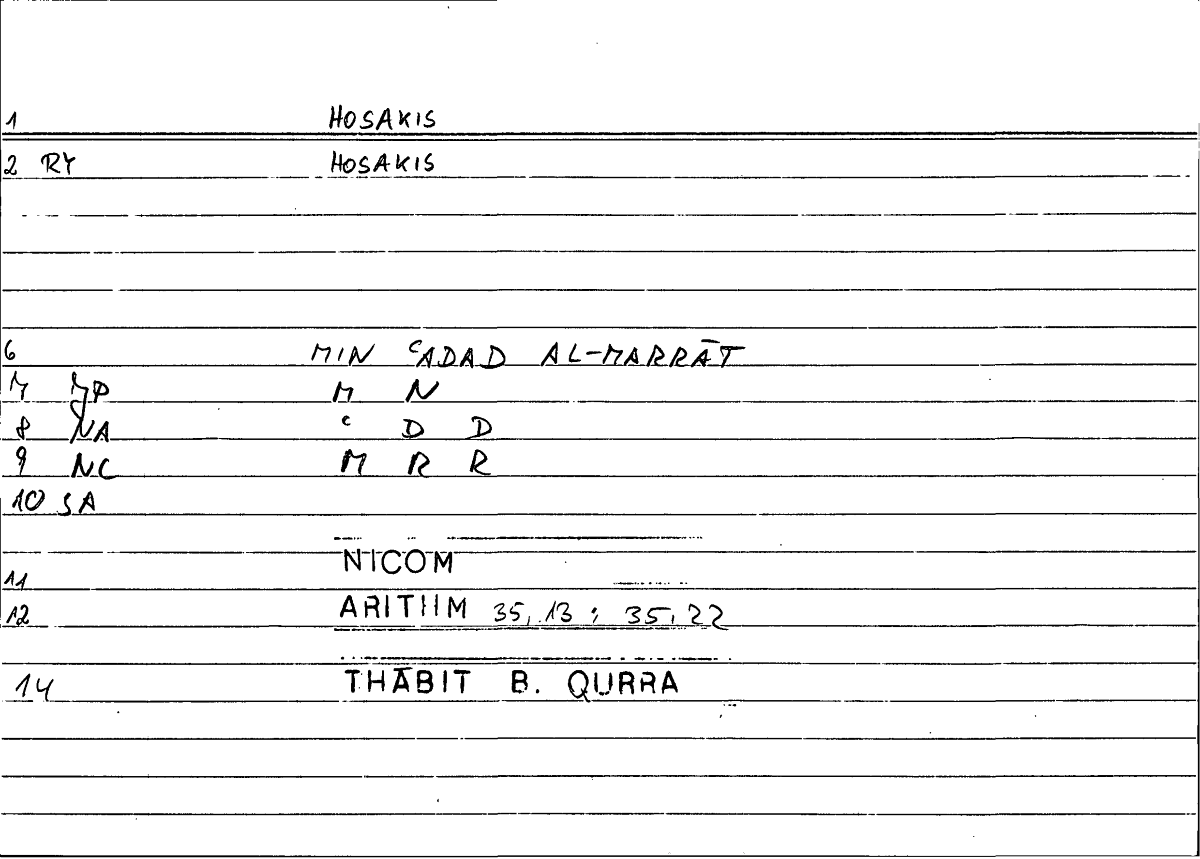 1 HOSAKIS
2 RY HOSAKIS
6 MIN ʿADAD AL-MARRĀT
7 MP M N
8 NA ʿ D D
9 NC M R R
10 SA
11 NICOM
12 ARITHM 35,13 ; 35,22
14 THĀBIT B. QURRA